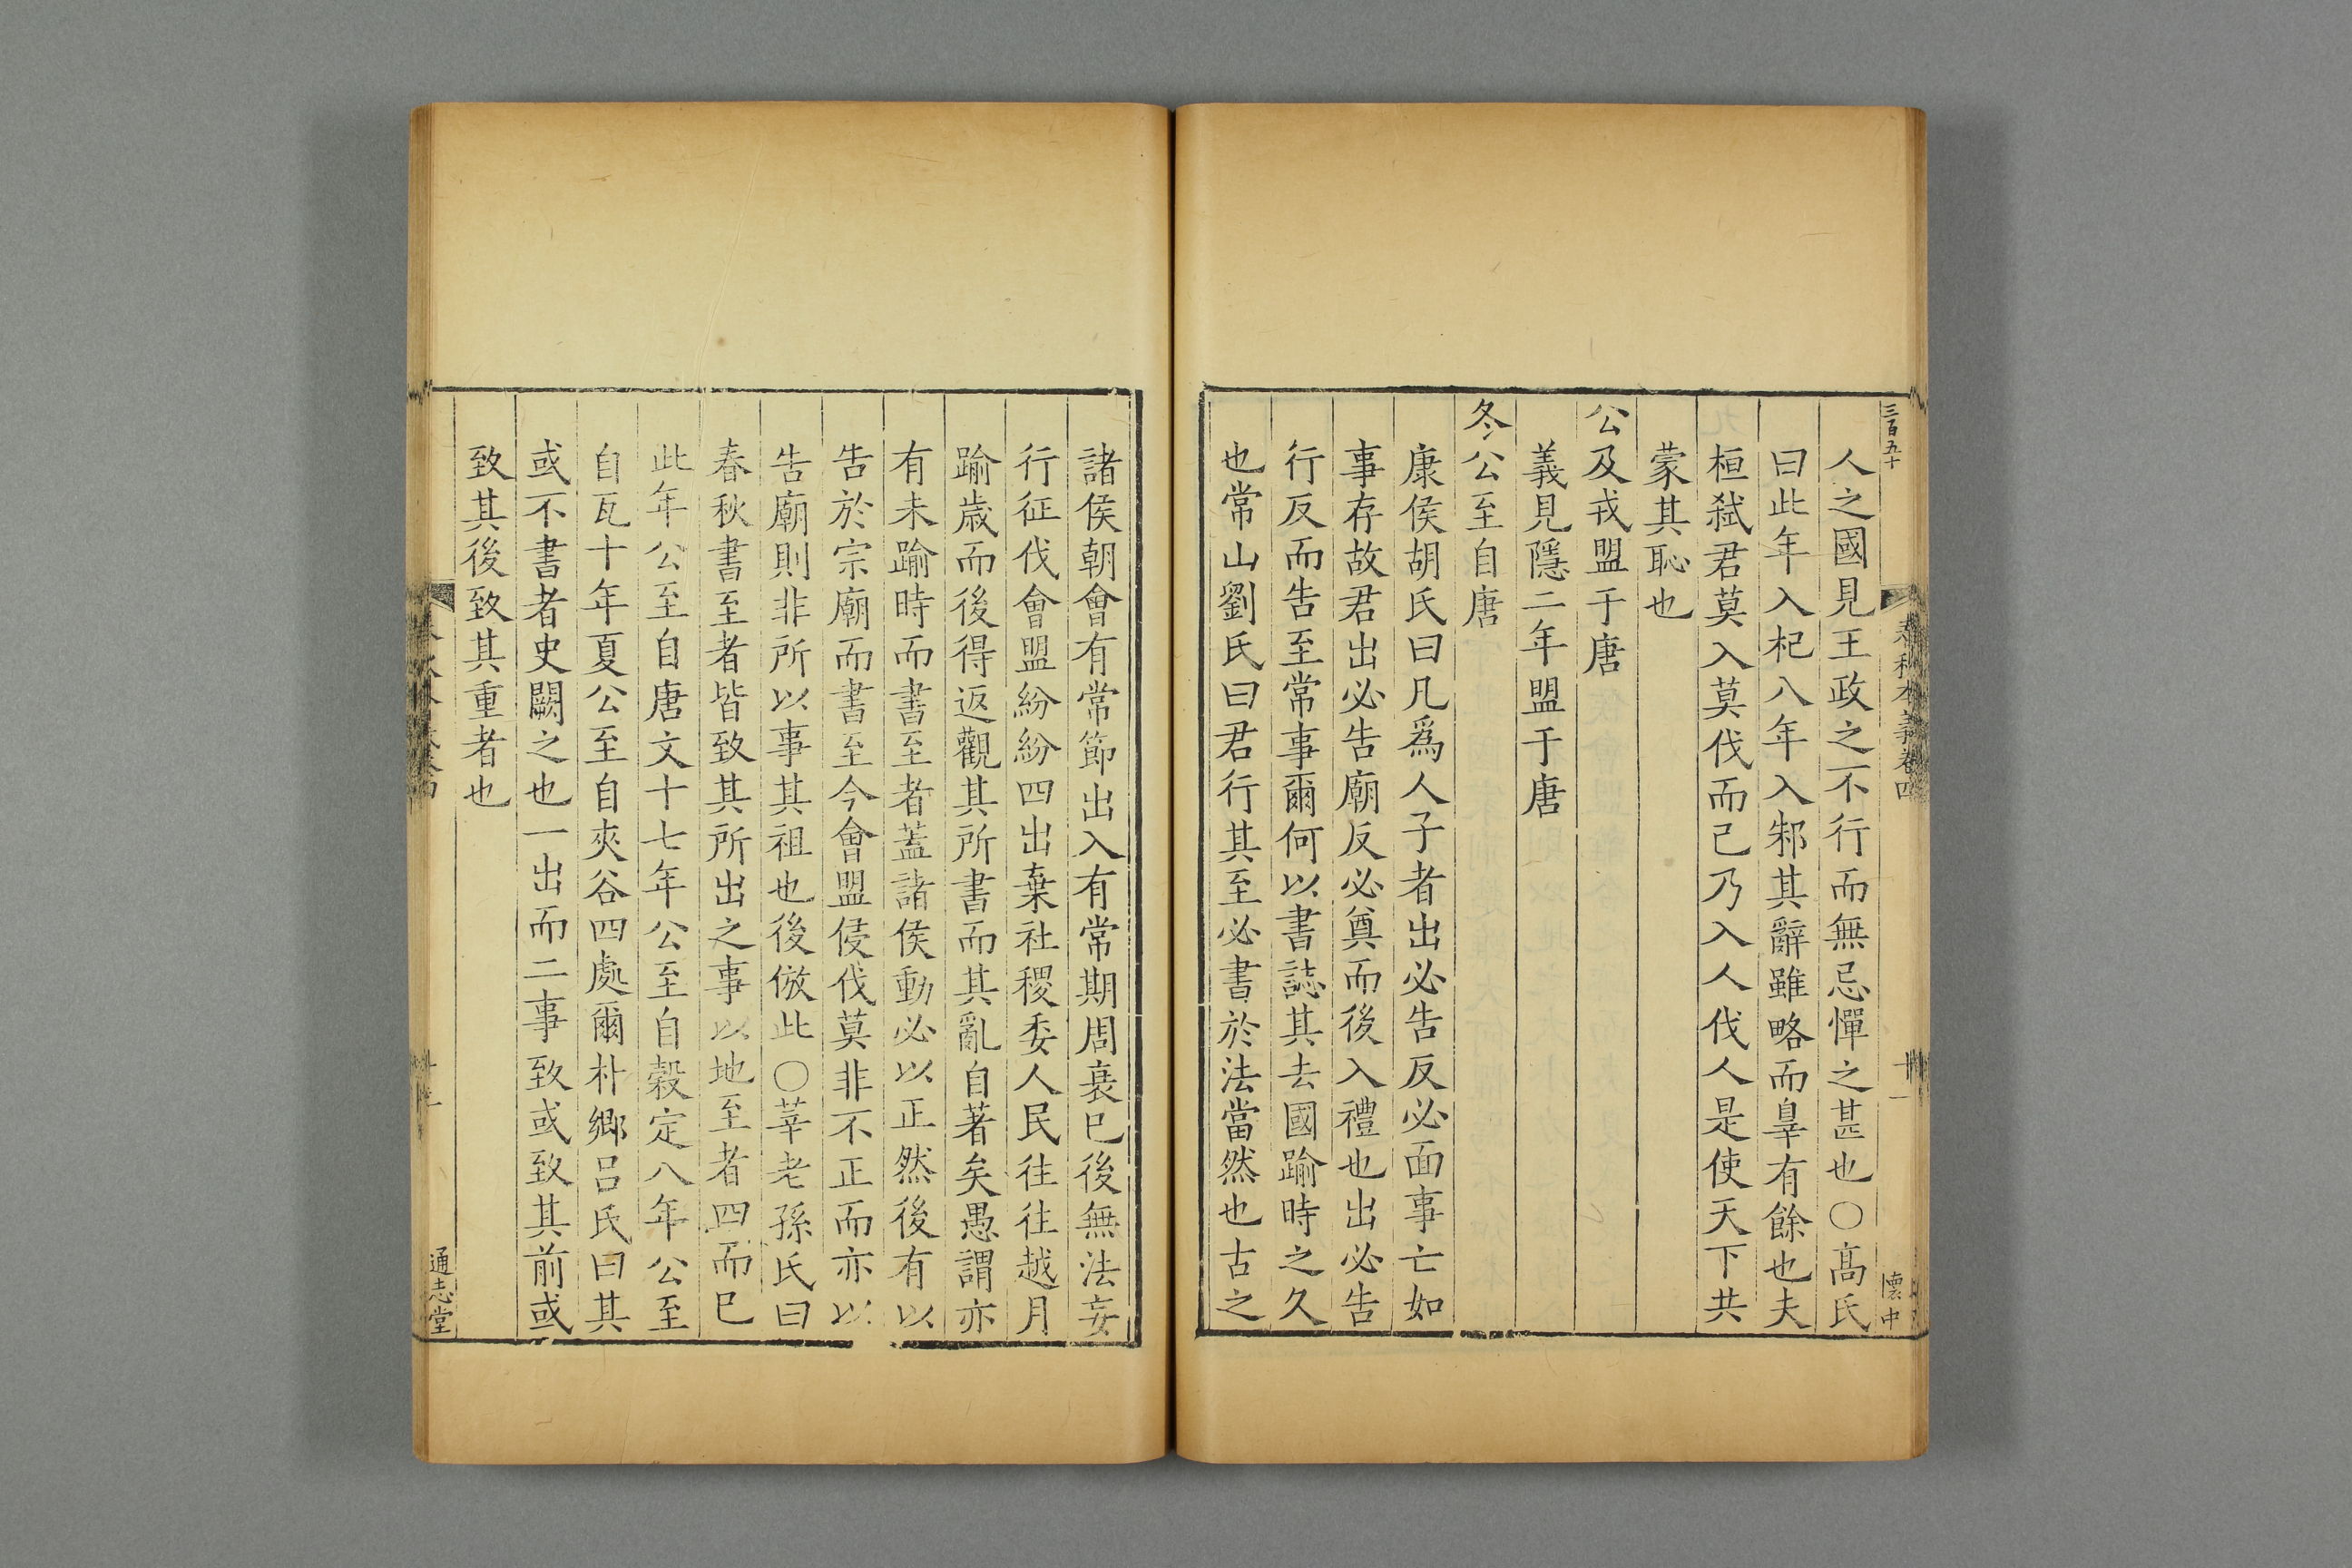 三百五十
春秋本義卷四
懷中
人之國見王政之不行而無忌憚之甚也〇髙氏
曰此年入杞八年入邾其辭雖略而辠有餘也夫
桓弑君莫入莫伐而已乃入人伐人是使天下共
蒙其恥也
公及戎盟于唐
義見隱二年盟于唐
冬公至自唐
康侯胡氏曰凡爲人子者出必告反必面事亡如
事存故君出必告廟反必奠而後入禮也出必告
行反而告至常事爾何以書誌其去國踰時之久
也常山劉氏曰君行其至必書於法當然也古之
諸侯朝會有常節出入有常期周衰已後無法妄
行征伐會盟紛紛四出棄社稷委人民往往越月
踰歲而後得返觀其所書而其亂自著矣愚謂亦
有未踰時而書至者蓋諸侯動必以正然後有以
告於宗廟而書至今會盟侵伐莫非不正而亦以
告廟則非所以事其祖也後倣此〇莘老孫氏曰
春秋書至者皆致其所出之事以地至者四而已
此年公至自唐文十七年公至自穀定八年公至
自瓦十年夏公至自夾谷四處爾朴鄉呂氏曰其
或不書者史闕之也一出而二事致或致其前或
致其後致其重者也
通志堂